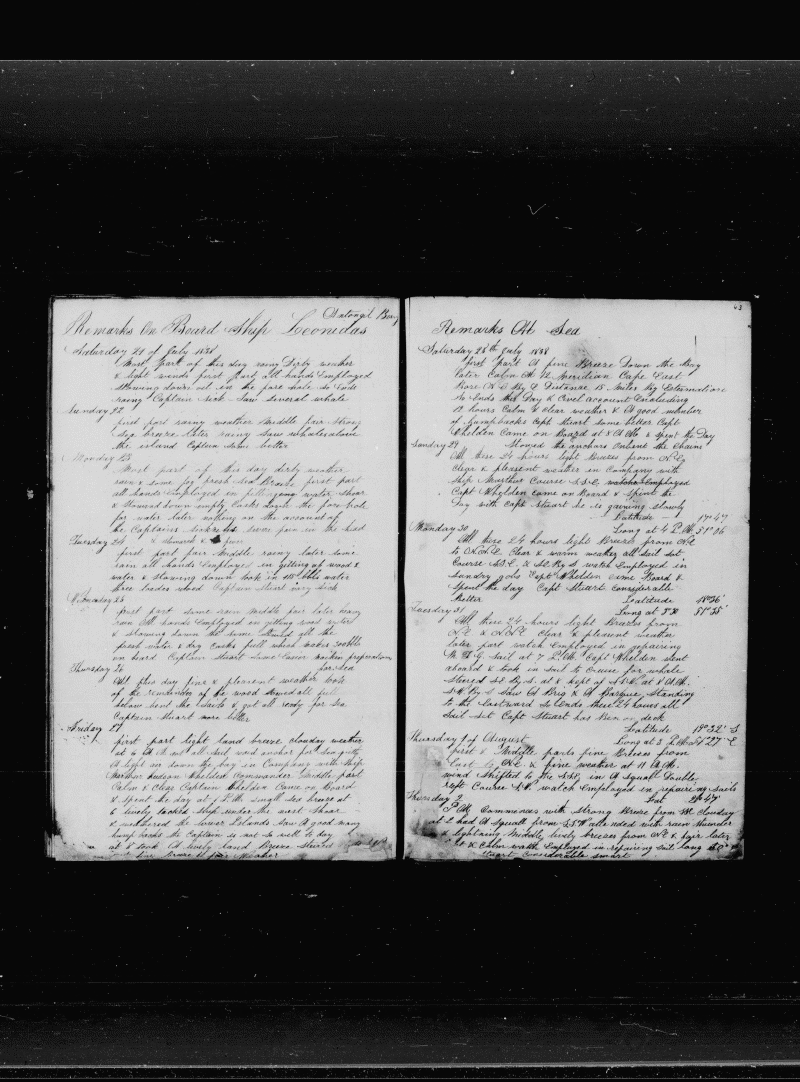 Remarks On Board Ship Leonidas
Saturday 21 of July 1838
Most part of this day rainy Dirty weather
& light winds first part all hands Employed
Stowing down oil in the fore hole So Ends
rainy Captain Sick Saw Several whale
Sunday 22
first part rainy weather Middle fair Strong
Sea breeze Later rainy Saw
the island Captain Some better
Monday 23
Most part of this day dirty weather
rain & some fog fresh Sea Breeze first part
all hands Employed in water
& Stowed down empty Casks the fore hole
for water later nothing on the account of
the Captains Sickness Severe pain in the head
Tuesday 24
first part fair Middle rainy later some
rain all hands Employed in getting of wood &
water & Stowing down took in bbls water
three loades wood Captain Stuart very Sick
Wednesday 25
first part some rain Middle fair later
rain All hands Employed in getting wood water
& Stowing down the same Stowed all the
fresh water & dry Casks full which makes
on board Captain Stuart Some Easier making preparation
for Sea
Thursday 26
All this day fine & pleasent weather took
of the remainder of the wood Stowed all full
below bent the and got all ready for Sea
Captain Stuart more better
Friday 27
first part light land breeze clouday weather
at 6 A M
A light air down the bay in Company with Ship
Hudson Whelden Commander Middle part
Calm & Clear Captain Whelden Came on Board
& Spent the day at 1 P M small Sea breeze at
6 lively tacked Ship under the west Shore
& weathered the lower Islands Saw A good many
hump backs the Captain is not So well to day
at 8 took A lively land Breeze Steered
Breeze & fair Weather
63
Remarks At Sea
Saturday 28th July 1838
first part A fine Breeze Down the Bay
Later Calm At 12 Meridian Cape East
Bore N E By E Distance 15 Miles By Estermation
So Ends this Day & Civel account Encluding
12 hours Calm & clear weather & A good number
of humpbacks Capt Stuart some better Capt
Whelden Came on Board at 8 A M & Spent the Day
Sunday 29 Stowed the anchors Unbent the Chains
All these 24 hours light Breezes from N E
Clear & pleasent weather in Company with
Ship Course S.S.E watch Employed
Capt Whelden came on Board & Spent the
Day with Capt Stuart he is gaining slowly
Latitude 17° 47
Long at 4 P.M. 51° 36
Monday 30
All these 24 hours light Breezes from N E
to N.N.E Clear & warm weather all sail set
Course S.S.E & S.E. By S watch Employed in
Sundry jobs Capt Whelden came Board &
Spent the day Capt Stuart considerable
Better Latitude 18° 36'
Long at
Tuesday 31
All these 24 hours light Breezes from
N.E & N.N.E Clear & pleasent weather
later part watch Employed in repairing
M. T. G. Sail at 7 P.M. Capt Whelden went
aboard & took in sail to Cruise for whale
Steered S.E. By S. at & kept of S.S.E. at 8 A.M.
S.E By S Saw A Brig & A Barque Standing
to the Eastward So Ends these 24 hours all
Sail Set Capt Stuart has Been on deck
Latitude 19° 32' S
Long at 3 P.M. 51° 27' E
Thursday 1 of August
first & Middle parts fine Breezes from
East to N.E. & fine weather at 11 A.M.
wind Shifted to the S.S.W in A Squall Double
reeft Course S.E. watch Employed in repairing sails
Thursday 2 Lat 20° 47'
P.M. Commences with Strong Breeze from Cloudey
at 2 had A Squall from S.S.W attended with rain thunder
& lightning Middle lively breezes from N.E & fair later
watch Employed in repairing Sail Long
Stuart considerable smart